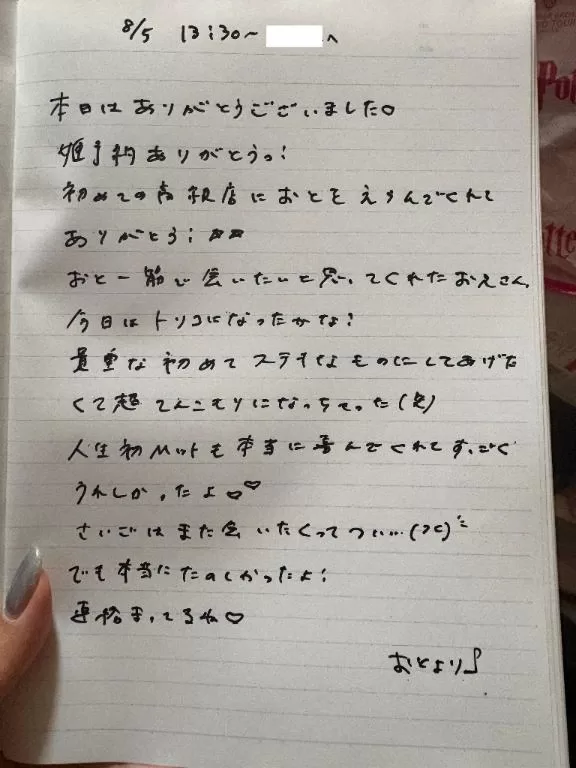 8/5 13:30~ へ
本日はありがとうございました♡
姫予約ありがとうっ!
初めての高級店におとをえらんでくれて
ありがとう! ★★
おと一筋で会いたいと思ってくれたおえさん。
今日はトリコになったかな?
貴重な初めてステキなものにしてあげた
くて超てんこもりになっちゃった(笑)
人生初Mットも本当に喜んでくれてすっごく
うれしかったよ♡♡
さいごはまた会いたくってつい…(>_<)
でも本当にたのしかったよ!
連絡まってるね♡
おとより♪
Pot
tte